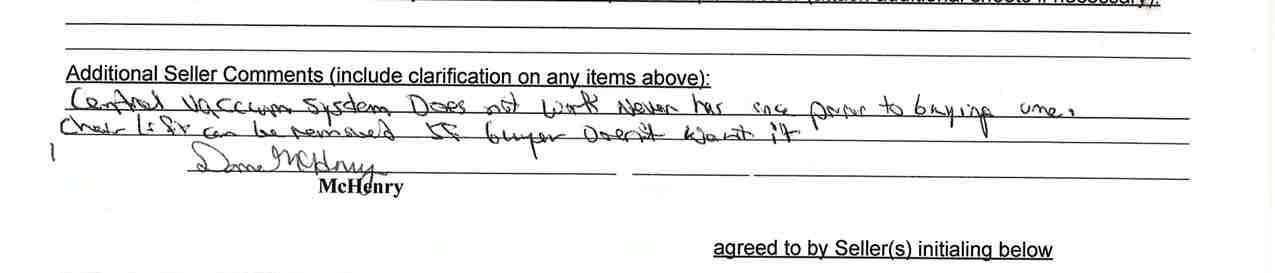 Additional Seller Comments (include clarification on any items above):
Central Vaccum System Does not work Never has since prior to buying
Chair lift can be removed If buyer Doesn't want it
McHenry
McHenry
agreed to by Seller(s) initialing below